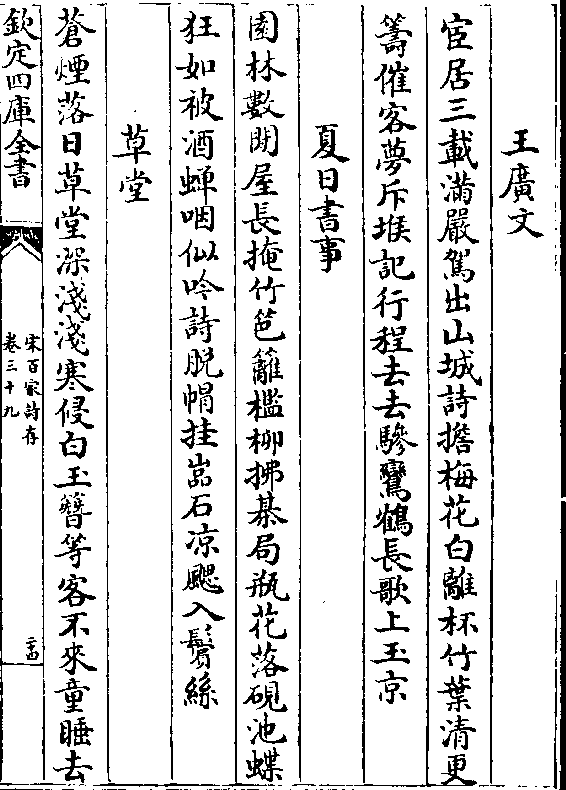 王廣文
宦居三載滿嚴駕出山城詩擔梅花白離杯竹葉清更
籌催客夢斥堠記行程去去驂鸞鶴長歌上玉京
夏日書事
園林數閒屋長掩竹笆籬檻柳拂棊局瓶花落硯池蝶
狂如被酒蟬咽似吟詩脱帽挂嵓石凉颸入鬢絲
草堂
蒼煙落日草堂深淺淺寒侵白玉簪等客不來童睡去
欽定四庫全書
宋百家詩存
卷三十九
二十四